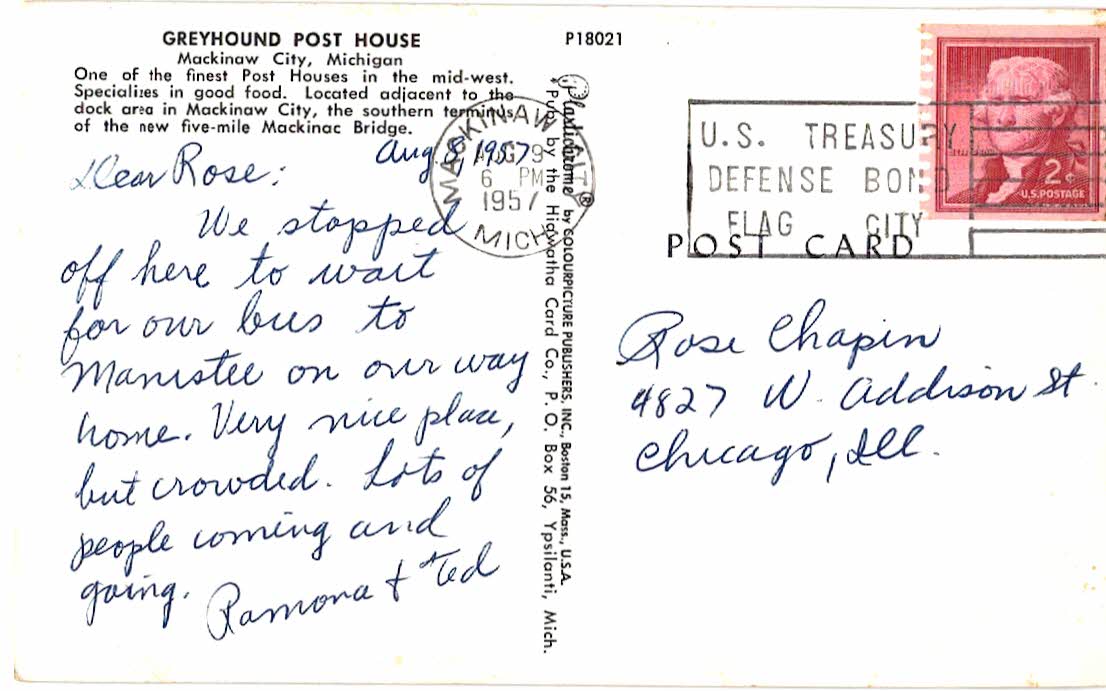 GREYHOUND POST HOUSE
Mackinaw City, Michigan
One of the finest Post Houses in the mid-west.
Specializes in good food. Located adjacent to the
dock area in Mackinaw City, the southern terminus
of the new five-mile Mackinac Bridge.
Aug 8, 1957
Dear Rose:
We stopped
off here to wait
for our bus to
Manistee on our way
home. Very nice place,
but crowded. Lots of
people coming and
going.
Ramona & Ted
P18021
Plastichrome ® by COLOURPICTURE PUBLISHERS, INC., Boston 15, Mass., U.S.A.
Pub. by the Hiawatha Card Co., P. O. Box 56, Ypsilanti, Mich.
MACKINAW CITY
AUG 9
6 PM
1957
MICH
U.S. TREASURY
DEFENSE BOND
FLAG CITY
2¢
U.S. POSTAGE
POST CARD
Rose Chapin
4827 W. Addison St.
Chicago, Ill.